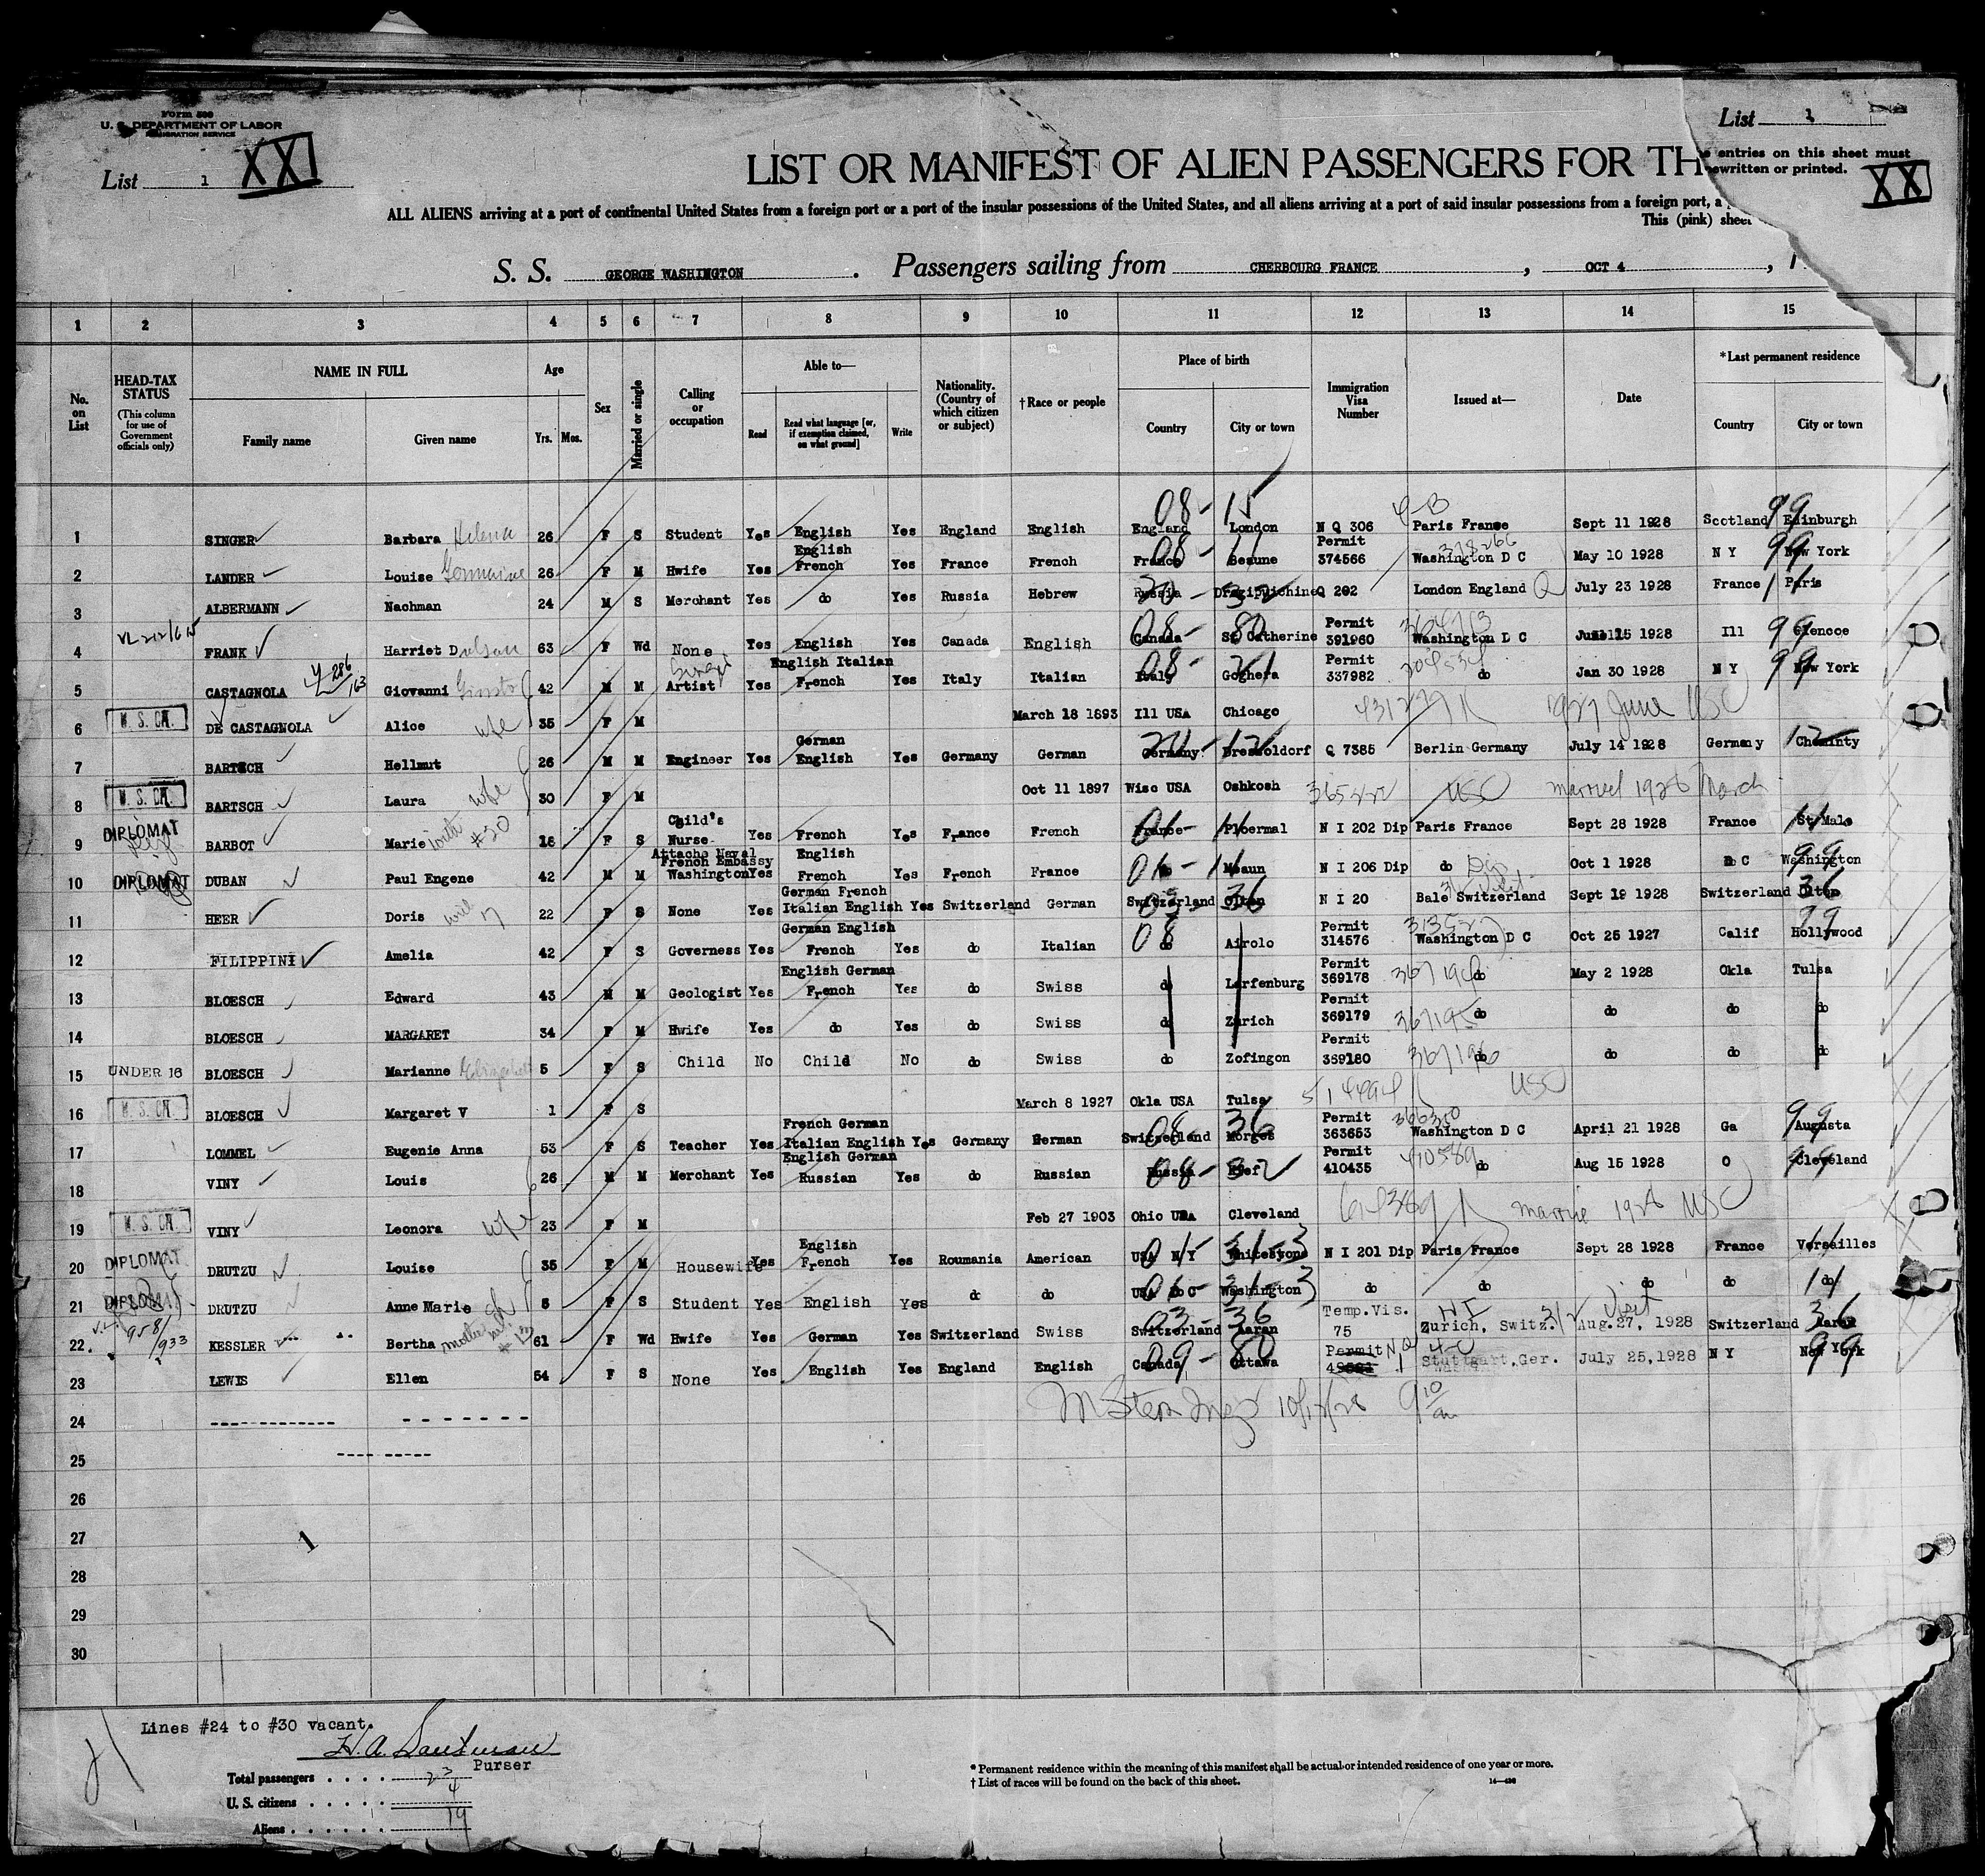 Form 500
U. S. DEPARTMENT OF LABOR
IMMIGRATION SERVICE
List 1
XX
List 1
XX
LIST OR MANIFEST OF ALIEN PASSENGERS FOR TH
entries on this sheet must
ewritten or printed.
ALL ALIENS arriving at a port of continental United States from a foreign port or a port of the insular possessions of the United States, and all aliens arriving at a port of said insular possessions from a foreign port, a
This (pink) sheet
S. S. GEORGE WASHINGTON . Passengers sailing from CHERBOURG FRANCE , OCT 4 , 1
1 2 3 4 5 6 7 8 9 10 11 12 13 14 15
No. on List
HEAD-TAX STATUS (This column for use of Government officials only)
NAME IN FULL
Family name Given name
Age
Yrs. Mos.
Sex
Married or single
Calling or occupation
Able to—
Read Read what language [or, if exemption claimed, on what ground] Write
Nationality. (Country of which citizen or subject)
†Race or people
Place of birth
Country City or town
Immigration Visa Number
Issued at—
Date
*Last permanent residence
Country City or town
1 SINGER Barbara Helena 26 F S Student Yes English Yes England English England London N Q 306 Paris France Sept 11 1928 Scotland Edinburgh
2 LANDER Louise Germaine 26 F M Hwife Yes English French Yes France French France Beaune Permit 374566 Washington D C May 10 1928 N Y New York
3 ALBERMANN Nachman 24 M S Merchant Yes do Yes Russia Hebrew Russia Q 202 London England July 23 1928 France Paris
4 FRANK Harriet 63 F Wd None Yes English Yes Canada English Canada St Catherine Permit 391960 Washington D C 15 1928 Ill Glencoe
5 CASTAGNOLA Giovanni 42 M M Artist Yes English Italian French Yes Italy Italian Italy Goghera Permit 337982 do Jan 30 1928 N Y New York
6 U. S. CIT. DE CASTAGNOLA Alice wfe 35 F M March 18 1893 Ill USA Chicago 1927 June USC
7 BARTSCH Hellmut 26 M M Engineer Yes German English Yes Germany German Germany Dresseldorf Q 7385 Berlin Germany July 14 1928 Germany Cheminty
8 U. S. CIT. BARTSCH Laura wfe 30 F M Oct 11 1897 Wisc USA Oshkosh USC married 1928 March
9 DIPLOMAT BARBOT Marie with #20 16 F S Child's Nurse Yes French Yes France French France Ploermal N I 202 Dip Paris France Sept 28 1928 France St Malo
10 DIPLOMAT DUBAN Paul Engene 42 M M Attache Naval French Embassy Washington Yes English French Yes French France N I 206 Dip do Oct 1 1928 D C Washington
11 HEER Doris 22 F S None Yes German French Italian English Yes Switzerland German Switzerland Olten N I 20 Bale Switzerland Sept 19 1928 Switzerland Olten
12 FILIPPINI Amelia 42 F S Governess Yes German English French Yes do Italian do Airolo Permit 314576 Washington D C Oct 25 1927 Calif Hollywood
13 BLOESCH Edward 43 M M Geologist Yes English German French Yes do Swiss do Larfenburg Permit 369178 do May 2 1928 Okla Tulsa
14 BLOESCH MARGARET 34 F M Hwife Yes do Yes do Swiss do Zurich Permit 369179 do do do do
15 UNDER 16 BLOESCH Marianne Elizabeth 5 F S Child No Child No do Swiss do Zofingon Permit 369180 do do do do
16 U. S. CIT. BLOESCH Margaret V 1 F S March 8 1927 Okla USA Tulsa USC
17 LOMMEL Eugenie Anna 53 F S Teacher Yes French German Italian English Yes Germany German Switzerland Morges Permit 363653 Washington D C April 21 1928 Ga Augusta
18 VINY Louis 26 M M Merchant Yes English German Russian Yes do Russian Russia Kief Permit 410435 do Aug 15 1928 O Cleveland
19 U. S. CIT. VINY Leonora wfe 23 F M Feb 27 1903 Ohio USA Cleveland 1928 USC
20 DIPLOMAT DRUTZU Louise 35 F M Housewife Yes English French Yes Roumania American USA N Y Whitestone N I 201 Dip Paris France Sept 28 1928 France Versailles
21 DIPLOMAT DRUTZU Anne Marie ch 5 F S Student Yes English Yes do do USA D C Washington do do do do do
22. KESSLER Bertha 61 F Wd Hwife Yes German Yes Switzerland Swiss Switzerland Aaran Temp. Vis. 75 Zurich, Switz. Aug. 27, 1928 Switzerland Aaran
23 LEWIS Ellen 54 F S None Yes English Yes England English Canada Ottawa Permit Stuttgart, Ger. July 25, 1928 N Y New York
24
25
26
27
28
29
30
1
Lines #24 to #30 vacant.
Purser
Total passengers . . . . 23
U. S. citizens . . . . . 4
Aliens . . . . . . 19
* Permanent residence within the meaning of this manifest shall be actual or intended residence of one year or more.
† List of races will be found on the back of this sheet.